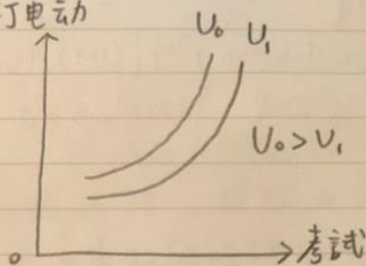 打电动
U₀ U₁
U₀>U₁
0
考試